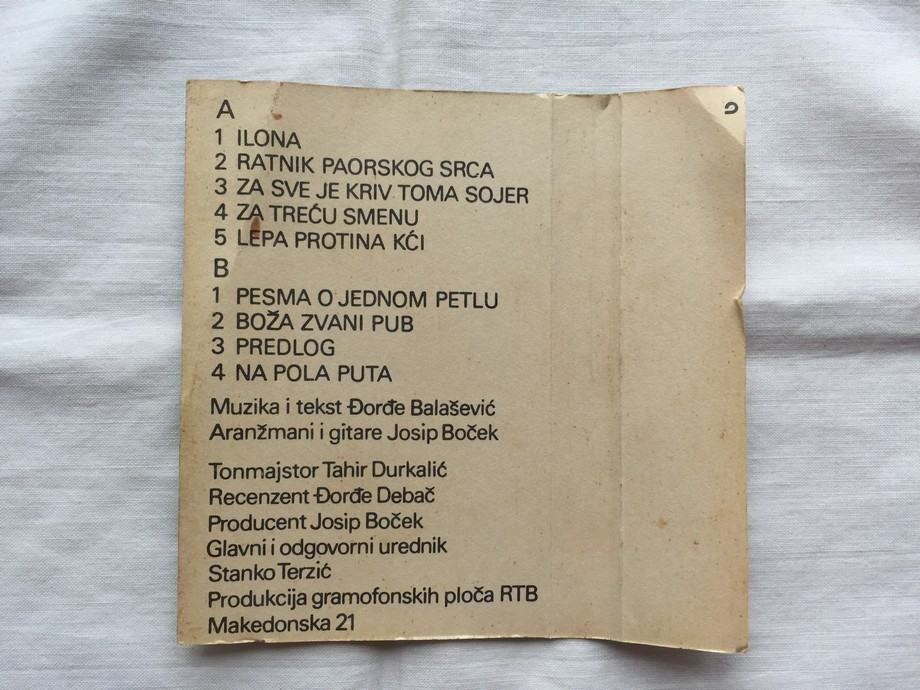 A
1 ILONA
2 RATNIK PAORSKOG SRCA
3 ZA SVE JE KRIV TOMA SOJER
4 ZA TREĆU SMENU
5 LEPA PROTINA KĆI
B
1 PESMA O JEDNOM PETLU
2 BOŽA ZVANI PUB
3 PREDLOG
4 NA POLA PUTA
Muzika i tekst Đorđe Balašević
Aranžmani i gitare Josip Boček
Tonmajstor Tahir Durkalić
Recenzent Đorđe Debač
Producent Josip Boček
Glavni i odgovorni urednik
Stanko Terzić
Produkcija gramofonskih ploča RTB
Makedonska 21